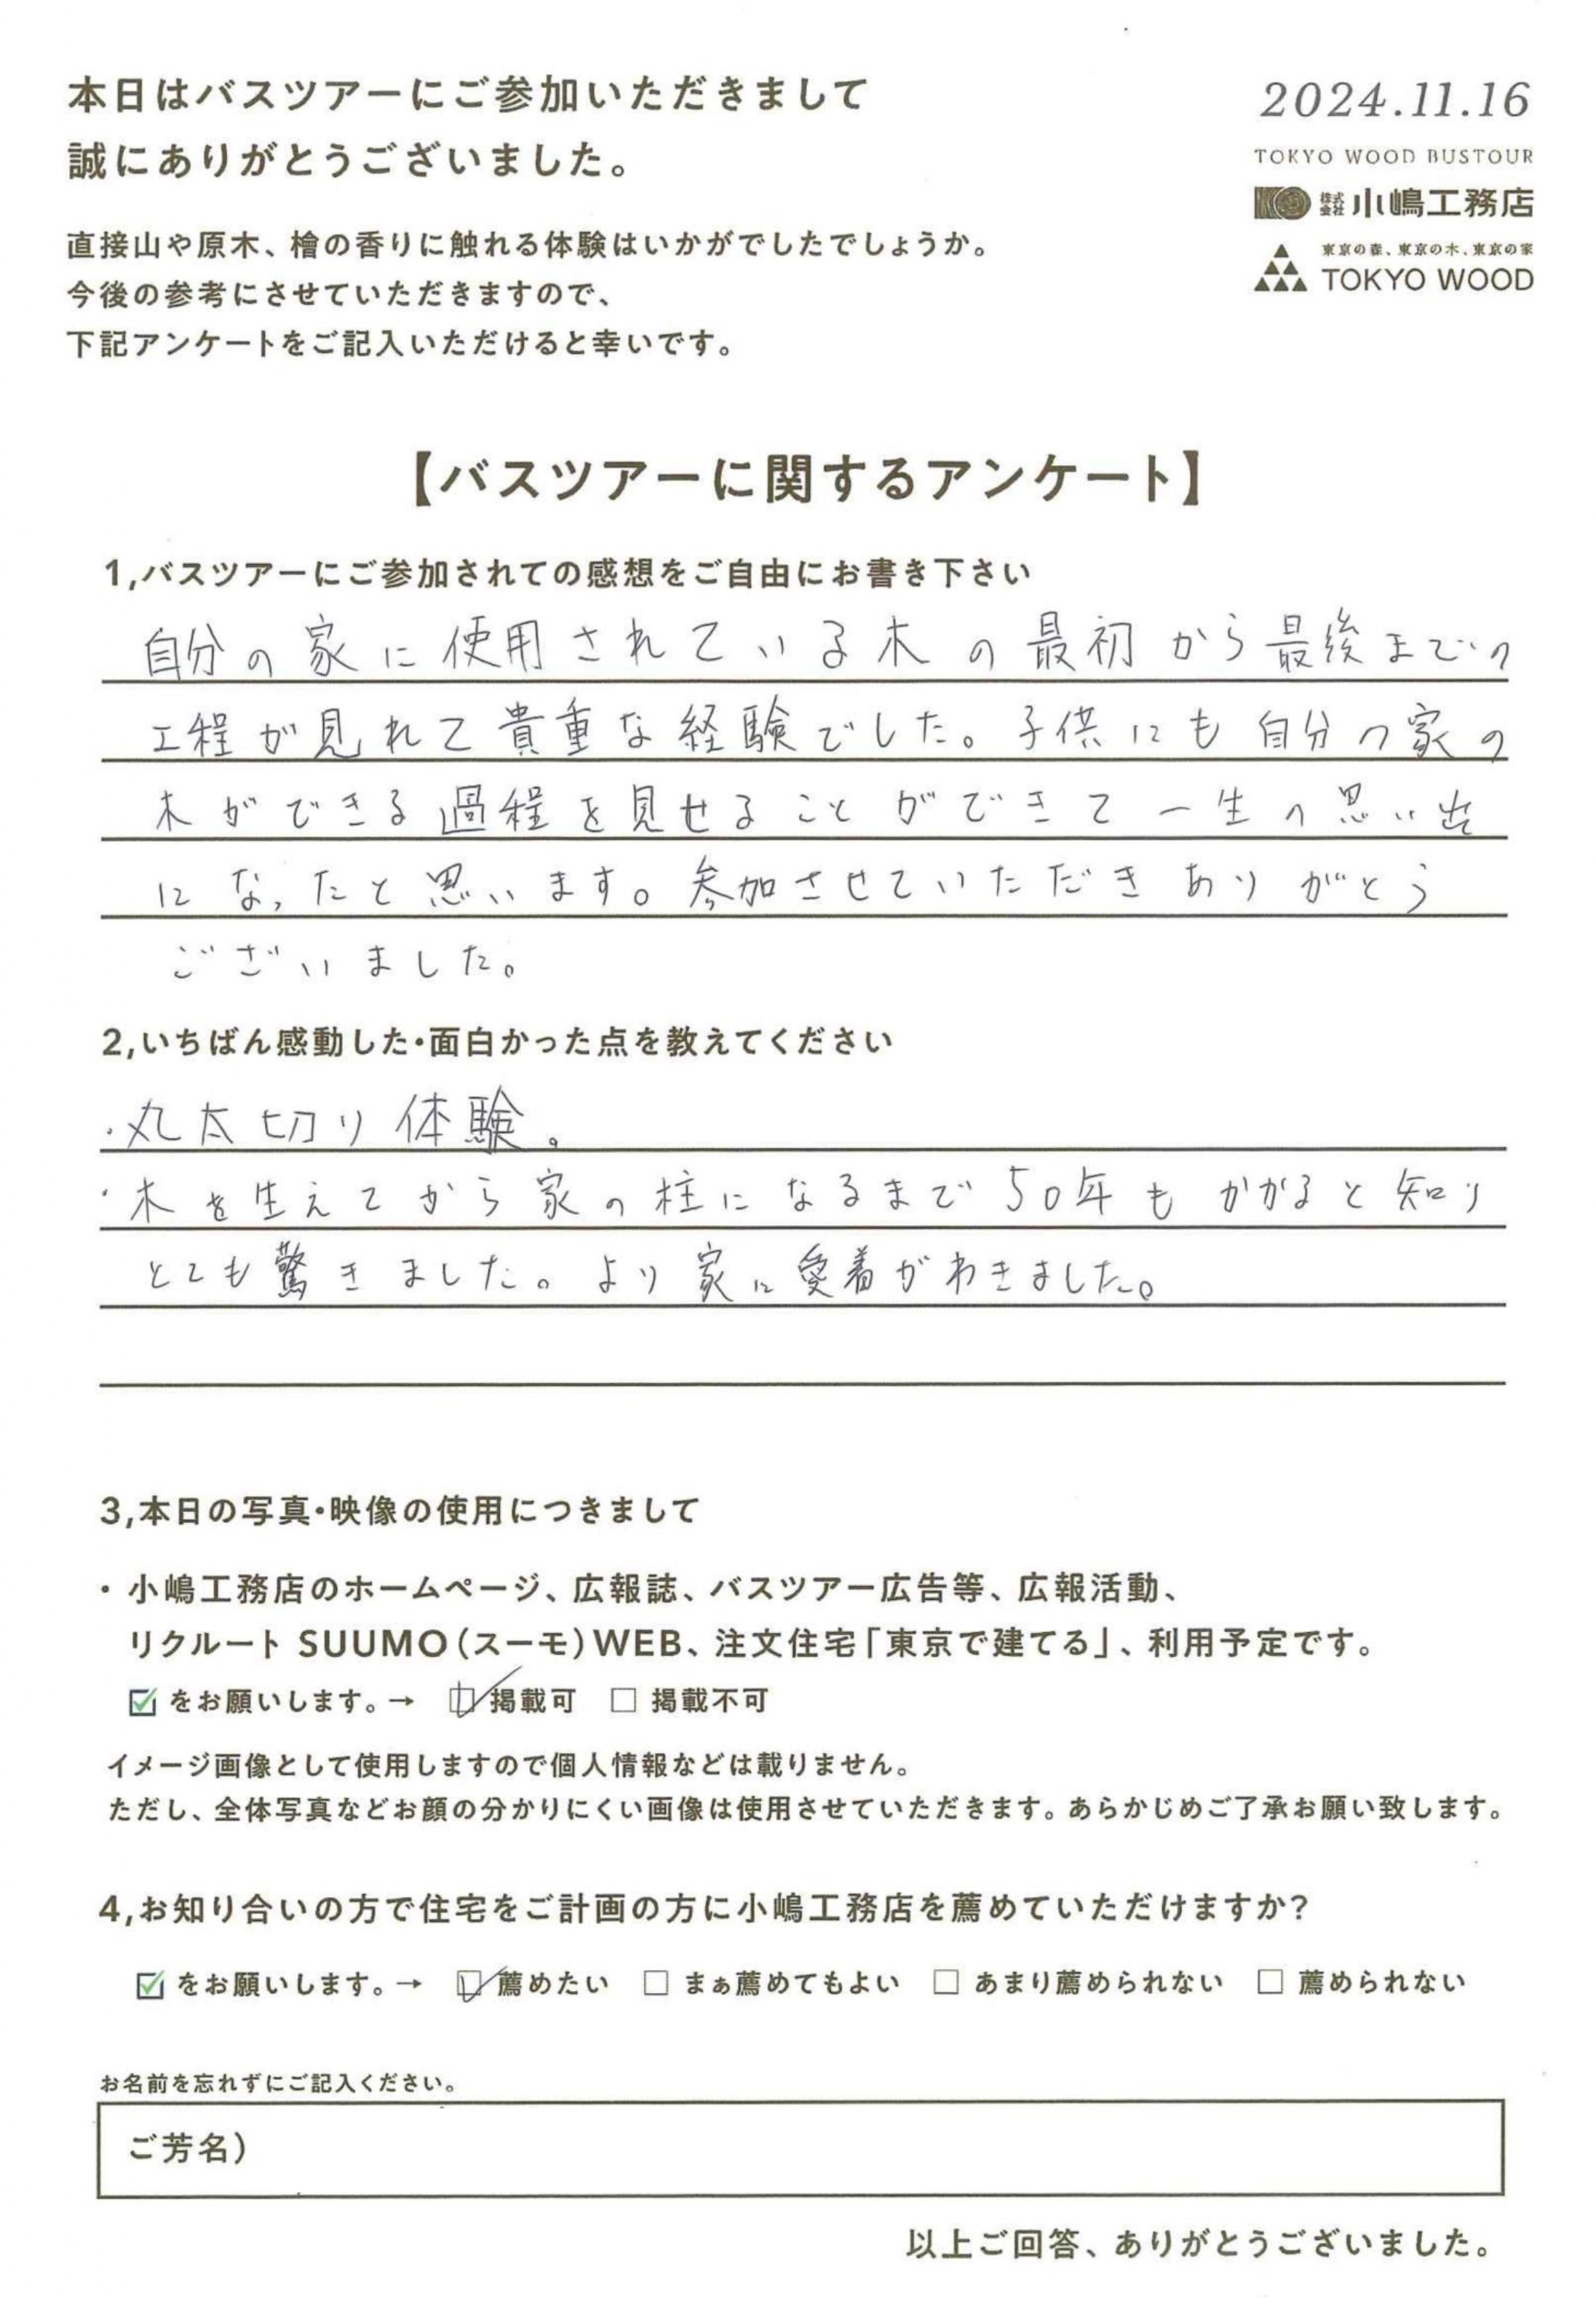 本日はバスツアーにご参加いただきまして
誠にありがとうございました。
2024.11.16
TOKYO WOOD BUSTOUR
株式会社 小嶋工務店
東京の森、東京の木、東京の家
TOKYO WOOD
直接山や原木、檜の香りに触れる体験はいかがでしたでしょうか。
今後の参考にさせていただきますので、
下記アンケートをご記入いただけると幸いです。
【バスツアーに関するアンケート】
1,バスツアーにご参加されての感想をご自由にお書き下さい
自分の家に使用されている木の最初から最後までの
工程が見れて貴重な経験でした。子供にも自分の家の
木ができる過程を見せることができて一生の思い出
になったと思います。参加させていただきありがとう
ございました。
2,いちばん感動した・面白かった点を教えてください
・丸太切り体験。
・木を生えてから家の柱になるまで50年もかかると知り
とても驚きました。より家に愛着がわきました。
3,本日の写真・映像の使用につきまして
・小嶋工務店のホームページ、広報誌、バスツアー広告等、広報活動、
リクルート SUUMO(スーモ)WEB、注文住宅「東京で建てる」、利用予定です。
☑をお願いします。→ ☑掲載可 □ 掲載不可
イメージ画像として使用しますので個人情報などは載りません。
ただし、全体写真などお顔の分かりにくい画像は使用させていただきます。あらかじめご了承お願い致します。
4,お知り合いの方で住宅をご計画の方に小嶋工務店を薦めていただけますか?
☑をお願いします。→ ☑薦めたい □ まぁ薦めてもよい □ あまり薦められない □ 薦められない
お名前を忘れずにご記入ください。
ご芳名)
以上ご回答、ありがとうございました。